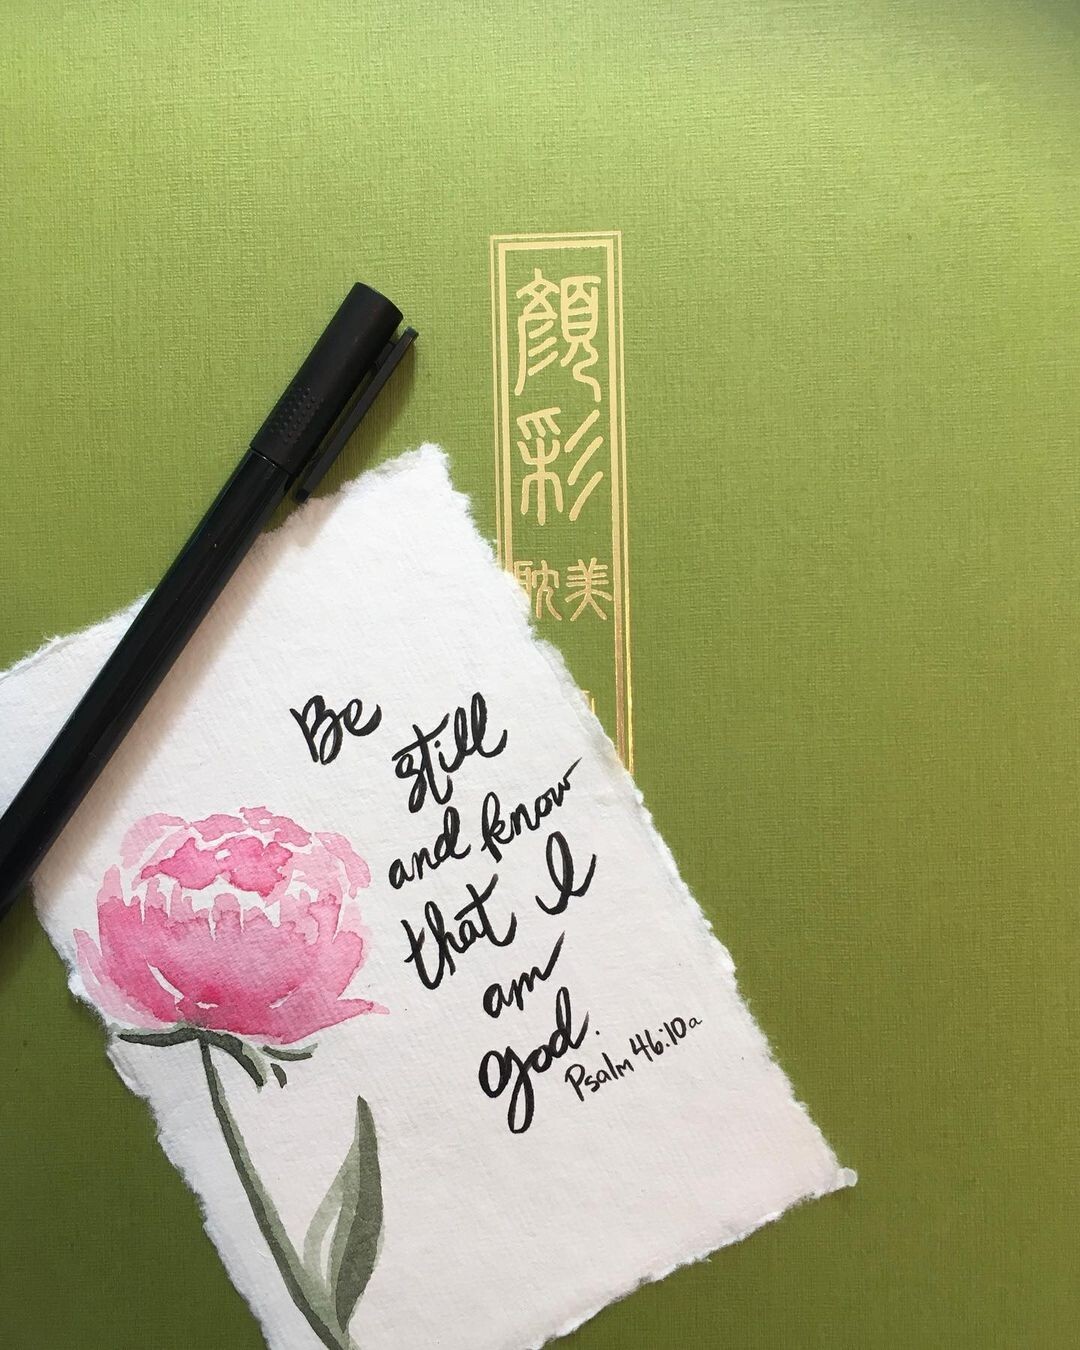 顔彩
耽美
Be
still
and know
that I
am
God.
Psalm 46:10a